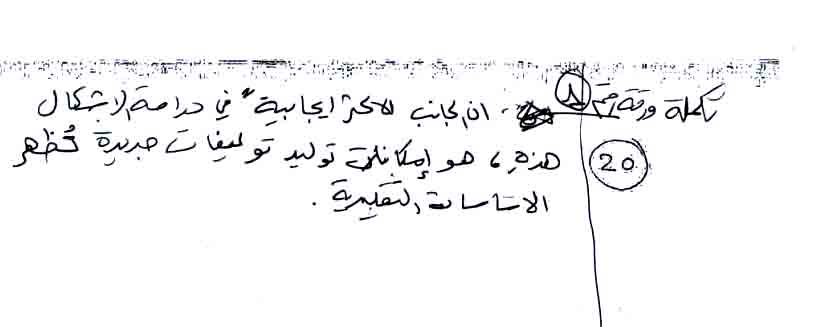 تكملة ورقة رقم ٨ ان الجانب الاكثر ايجابية" في دراسة الاشكال
20 هذه، هو إمكانية توليد توليفات جديدة تُظهر
التقليدية.